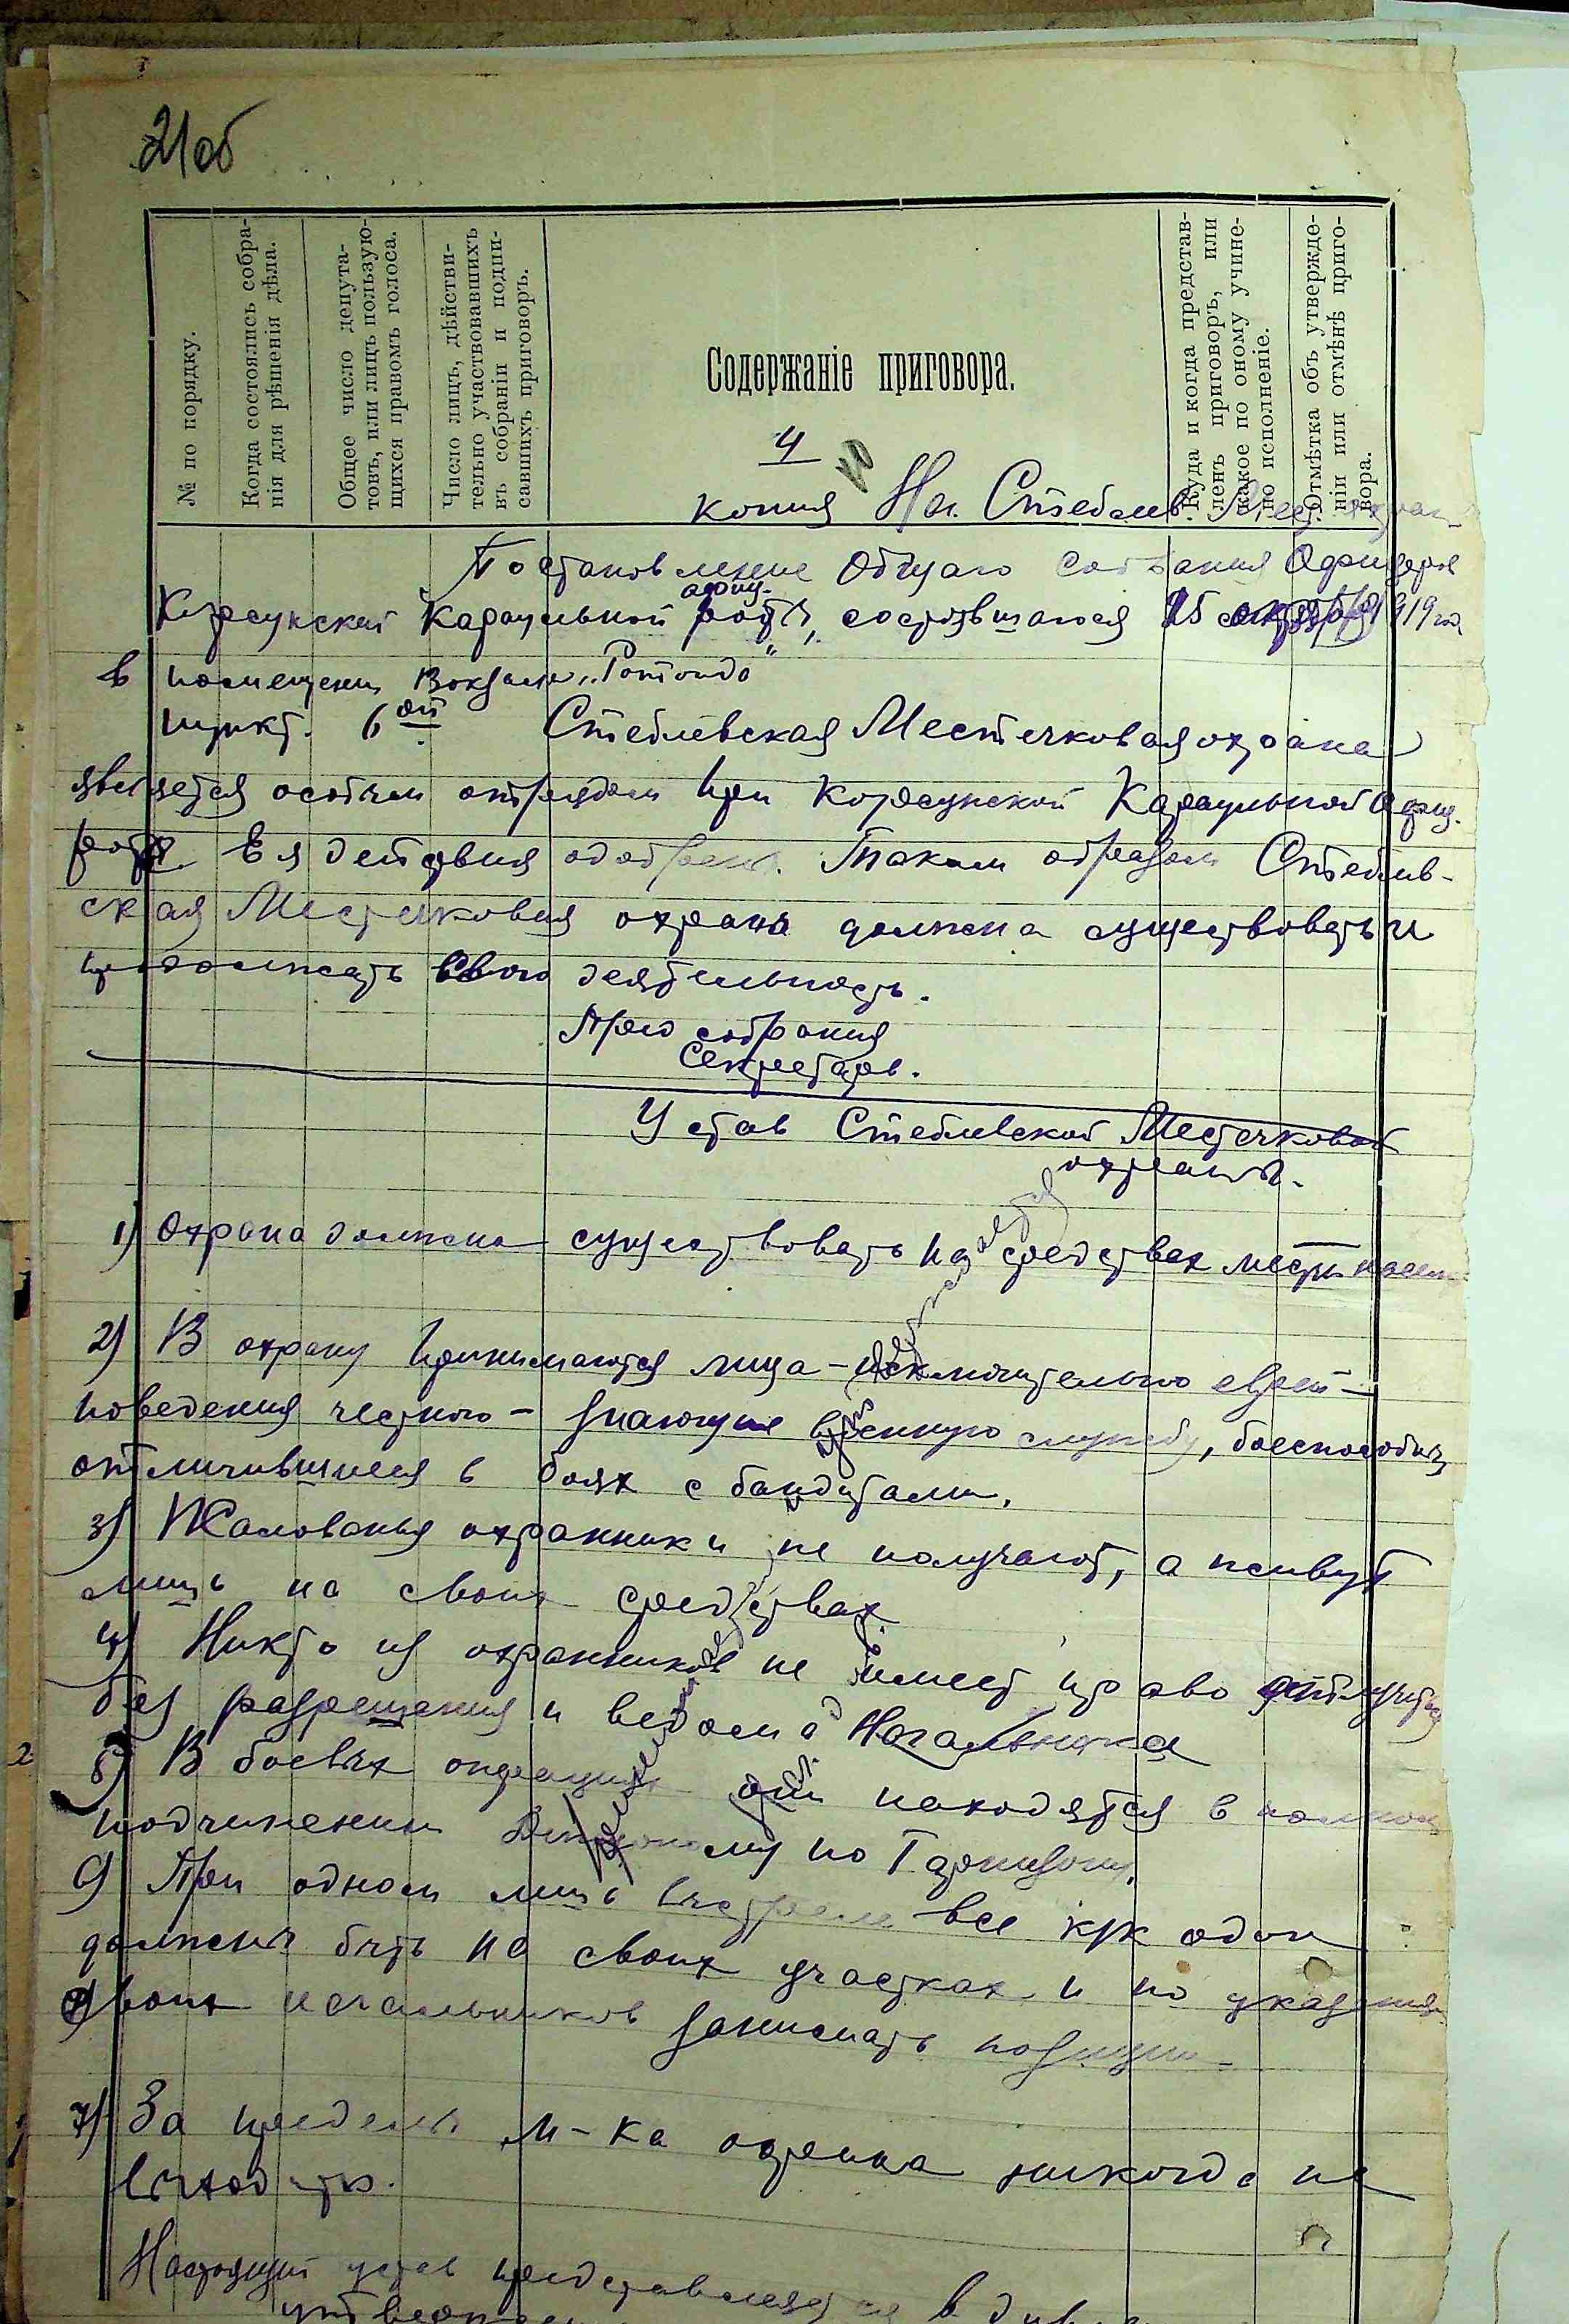 21об
№ по порядку.
Когда состоялись собра-
нія для рѣшенія дѣла.
Общее число депута-
товъ, или лицъ пользую-
щихся правомъ голоса.
Число лицъ, дѣйстви-
тельно участвовавшихъ
въ собраніи и подпи-
савшихъ приговоръ.
Содержаніе приговора.
Куда и когда представ-
ленъ приговоръ, или
какое по оному учине-
но исполненіе.
Отмѣтка объ утвержде-
ніи или отмѣнѣ приго-
вора.
4
копия На. Стеблев.
Постановление Общаго собрания Офицеров
Корсунской Караульной офиц. роты, состоявшагося 25 1919 год
в помещении Вокзала „Ротонда"
пункт. 6ой Стеблевская Местечковая охрана
является особым отрядом при Корсунской Караульной Офиц.
роте. Ея действия одобрены. Таким образом Стеблев-
ская Местечковая охрана должна существовать и
продолжать свою деятельность.
Пред собрания
Секретарь.
Устав Стеблевской Местечковой
охраны.
1) Охрана должна существовать на средствах местн насел
2) В охрану принимаются лица - исключительно евреи -
поведения честного - знающие военную службу, боеспособны,
отличившиеся в боях с бандитами.
3) Жалованья охранники не получают, а живут
лишь на своих средствах.
4) Никто из охранников не имеет право отлучиться
без разрешения и ведома Начальника
5) В боевых операциях они находятся в полном
подчинении по Гарнизону.
6) При одном лишь выстреле все как один
должны быть на своих участках и по указанию
своих начальников занимать позиции.
7) За пределы м-ка охрана никогда не
выходить.
Настоящий устав представляется в